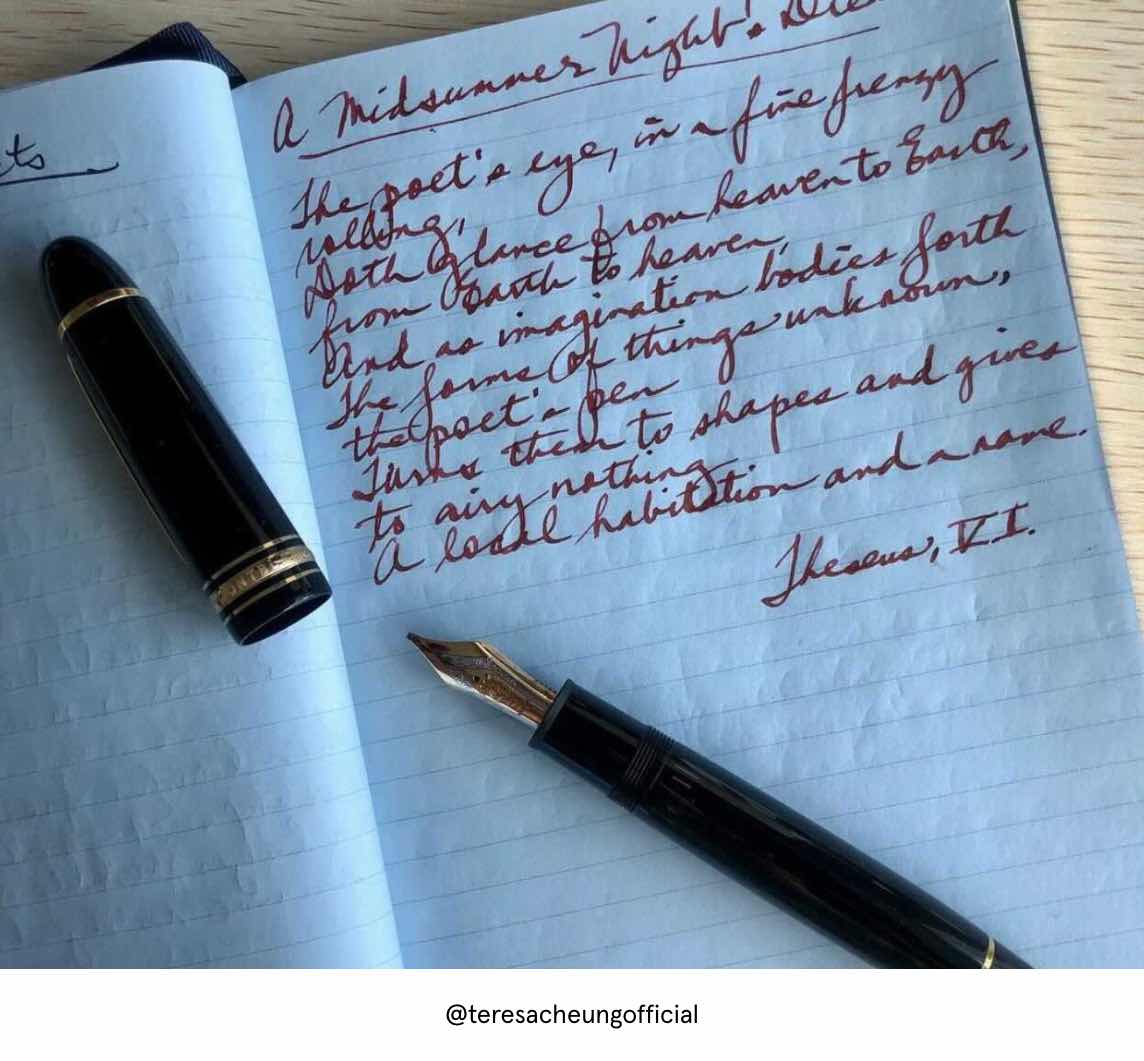 cts
A Midsummer Night's Dre
The poet's eye, in a fine frenzy
rolling,
Doth glance from heaven to Earth,
from Earth to heaven,
And as imagination bodies forth
The forms of things unknown,
the poet's pen
Turns them to shapes and gives
to airy nothing
A local habitation and a name.
Theseus, V.I.
@teresacheungofficial